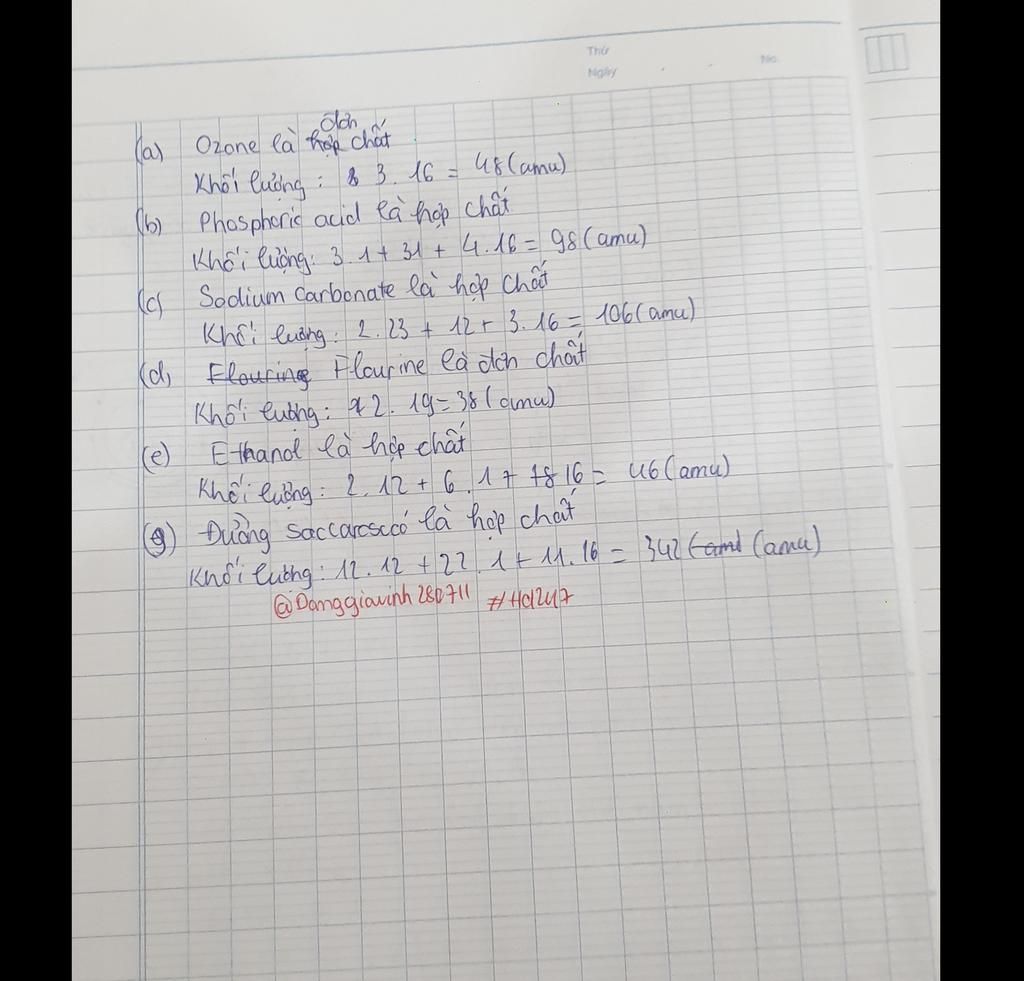 Thứ
Ngày
No.
(a) Ozone là hợp đơn chất
Khối lượng: 3.16 = 48(amu)
(b) Phosphoric acid là hợp chất
Khối lượng: 3.1+31+4.16=98(amu)
(c) Sodium carbonate là hợp chất
Khối lượng: 2.23+12+3.16=106(amu)
(d) Flourine Flourine là đơn chất
Khối lượng: 2.19=38(amu)
(e) Ethanol là hợp chất
Khối lượng: 2.12+6.1+ 16= 46(amu)
(g) Đường là hợp chất
Khối lượng: 12.12+22.1+11.16= 342 (amu (amu)
@Danggiavinh280711 #Hd247